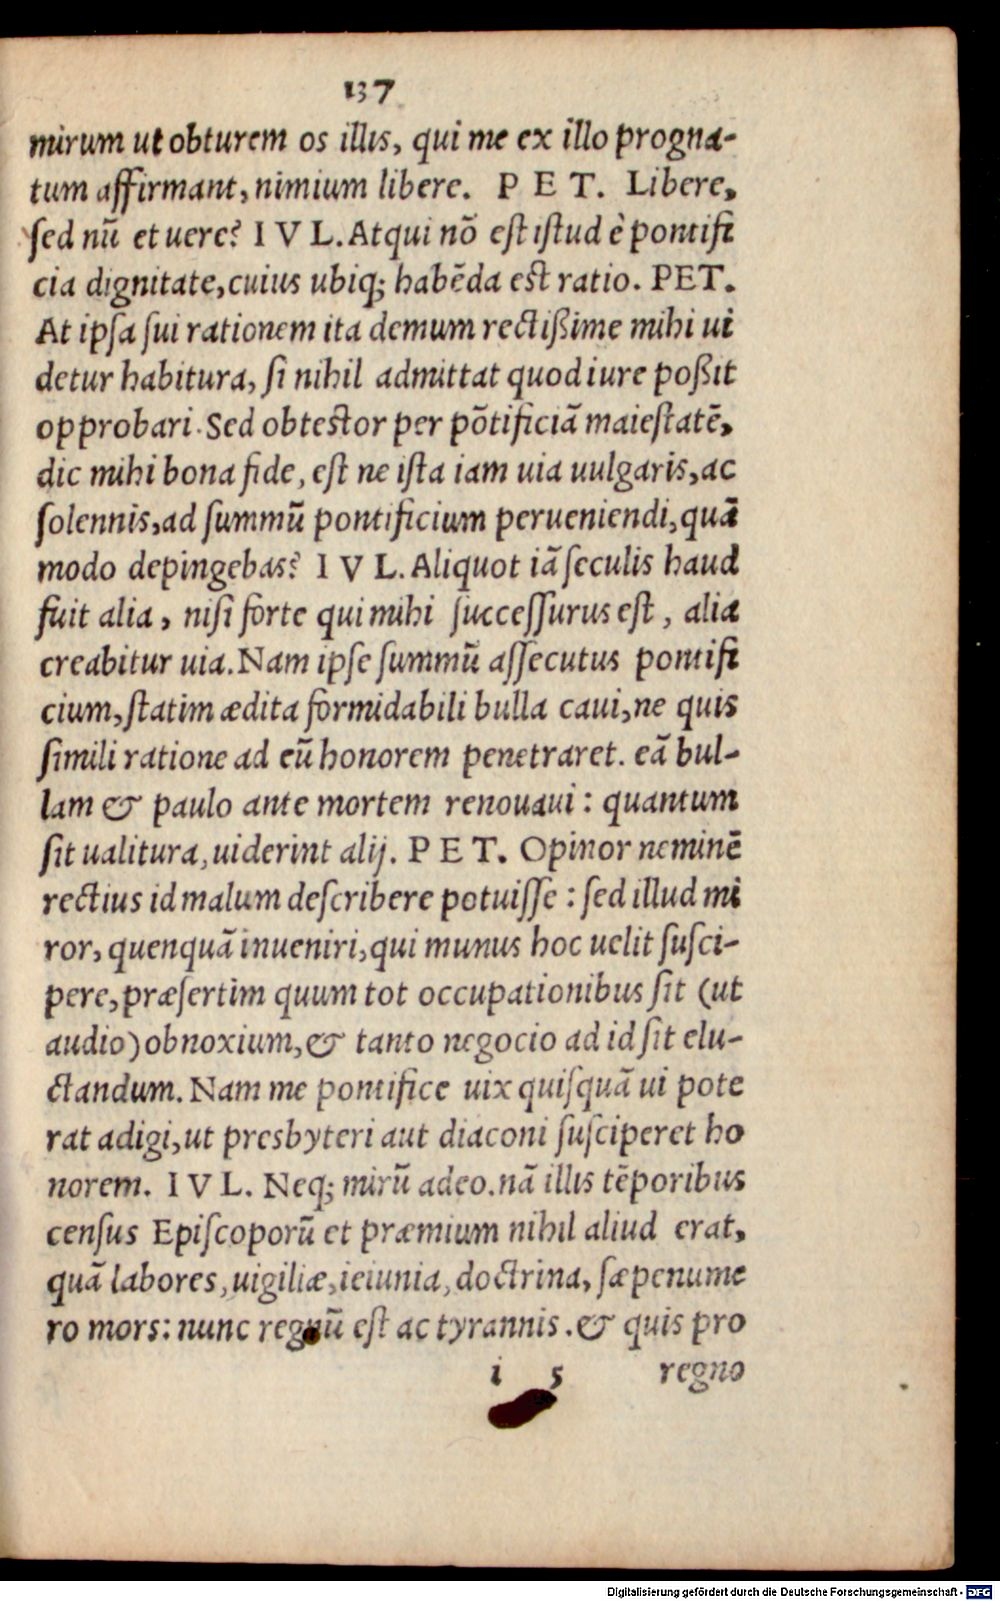 137
mirum ut obturem os illis, qui me ex illo progna-
tum affirmant, nimium libere. P E T. Libere,
sed nũ et uere? I V L. Atqui nõ est istud è pontifi
cia dignitate, cuius ubiq; habẽda est ratio. PET.
At ipsa sui rationem ita demum rectißime mihi ui
detur habitura, si nihil admittat quod iure poßit
opprobari. Sed obtestor per põtificiã maiestatẽ,
dic mihi bona fide, est ne ista iam uia uulgaris, ac
solennis, ad summũ pontificium perueniendi, quã
modo depingebas? I V L. Aliquot iã seculis haud
fuit alia, nisi forte qui mihi successurus est, alia
creabitur uia. Nam ipse summũ assecutus pontifi
cium, statim ædita formidabili bulla caui, ne quis
simili ratione ad eũ honorem penetraret. eã bul-
lam & paulo ante mortem renouaui: quantum
sit ualitura, uiderint alij. P E T. Opinor neminẽ
rectius id malum describere potuisse: sed illud mi
ror, quenquã inueniri, qui munus hoc uelit susci-
pere, præsertim quum tot occupationibus sit (ut
audio) obnoxium, & tanto negocio ad id sit elu-
ctandum. Nam me pontifice uix quisquã ui pote
rat adigi, ut presbyteri aut diaconi susciperet ho
norem. I V L. Neq; mirũ adeo. nã illis tẽporibus
census Episcoporũ et præmium nihil aliud erat,
quã labores, uigiliæ, ieiunia, doctrina, sæpenume
ro mors: nunc regnũ est ac tyrannis. & quis pro
i 5 regno
Digitalisierung gefördert durch die Deutsche Forschungsgemeinschaft - DFG